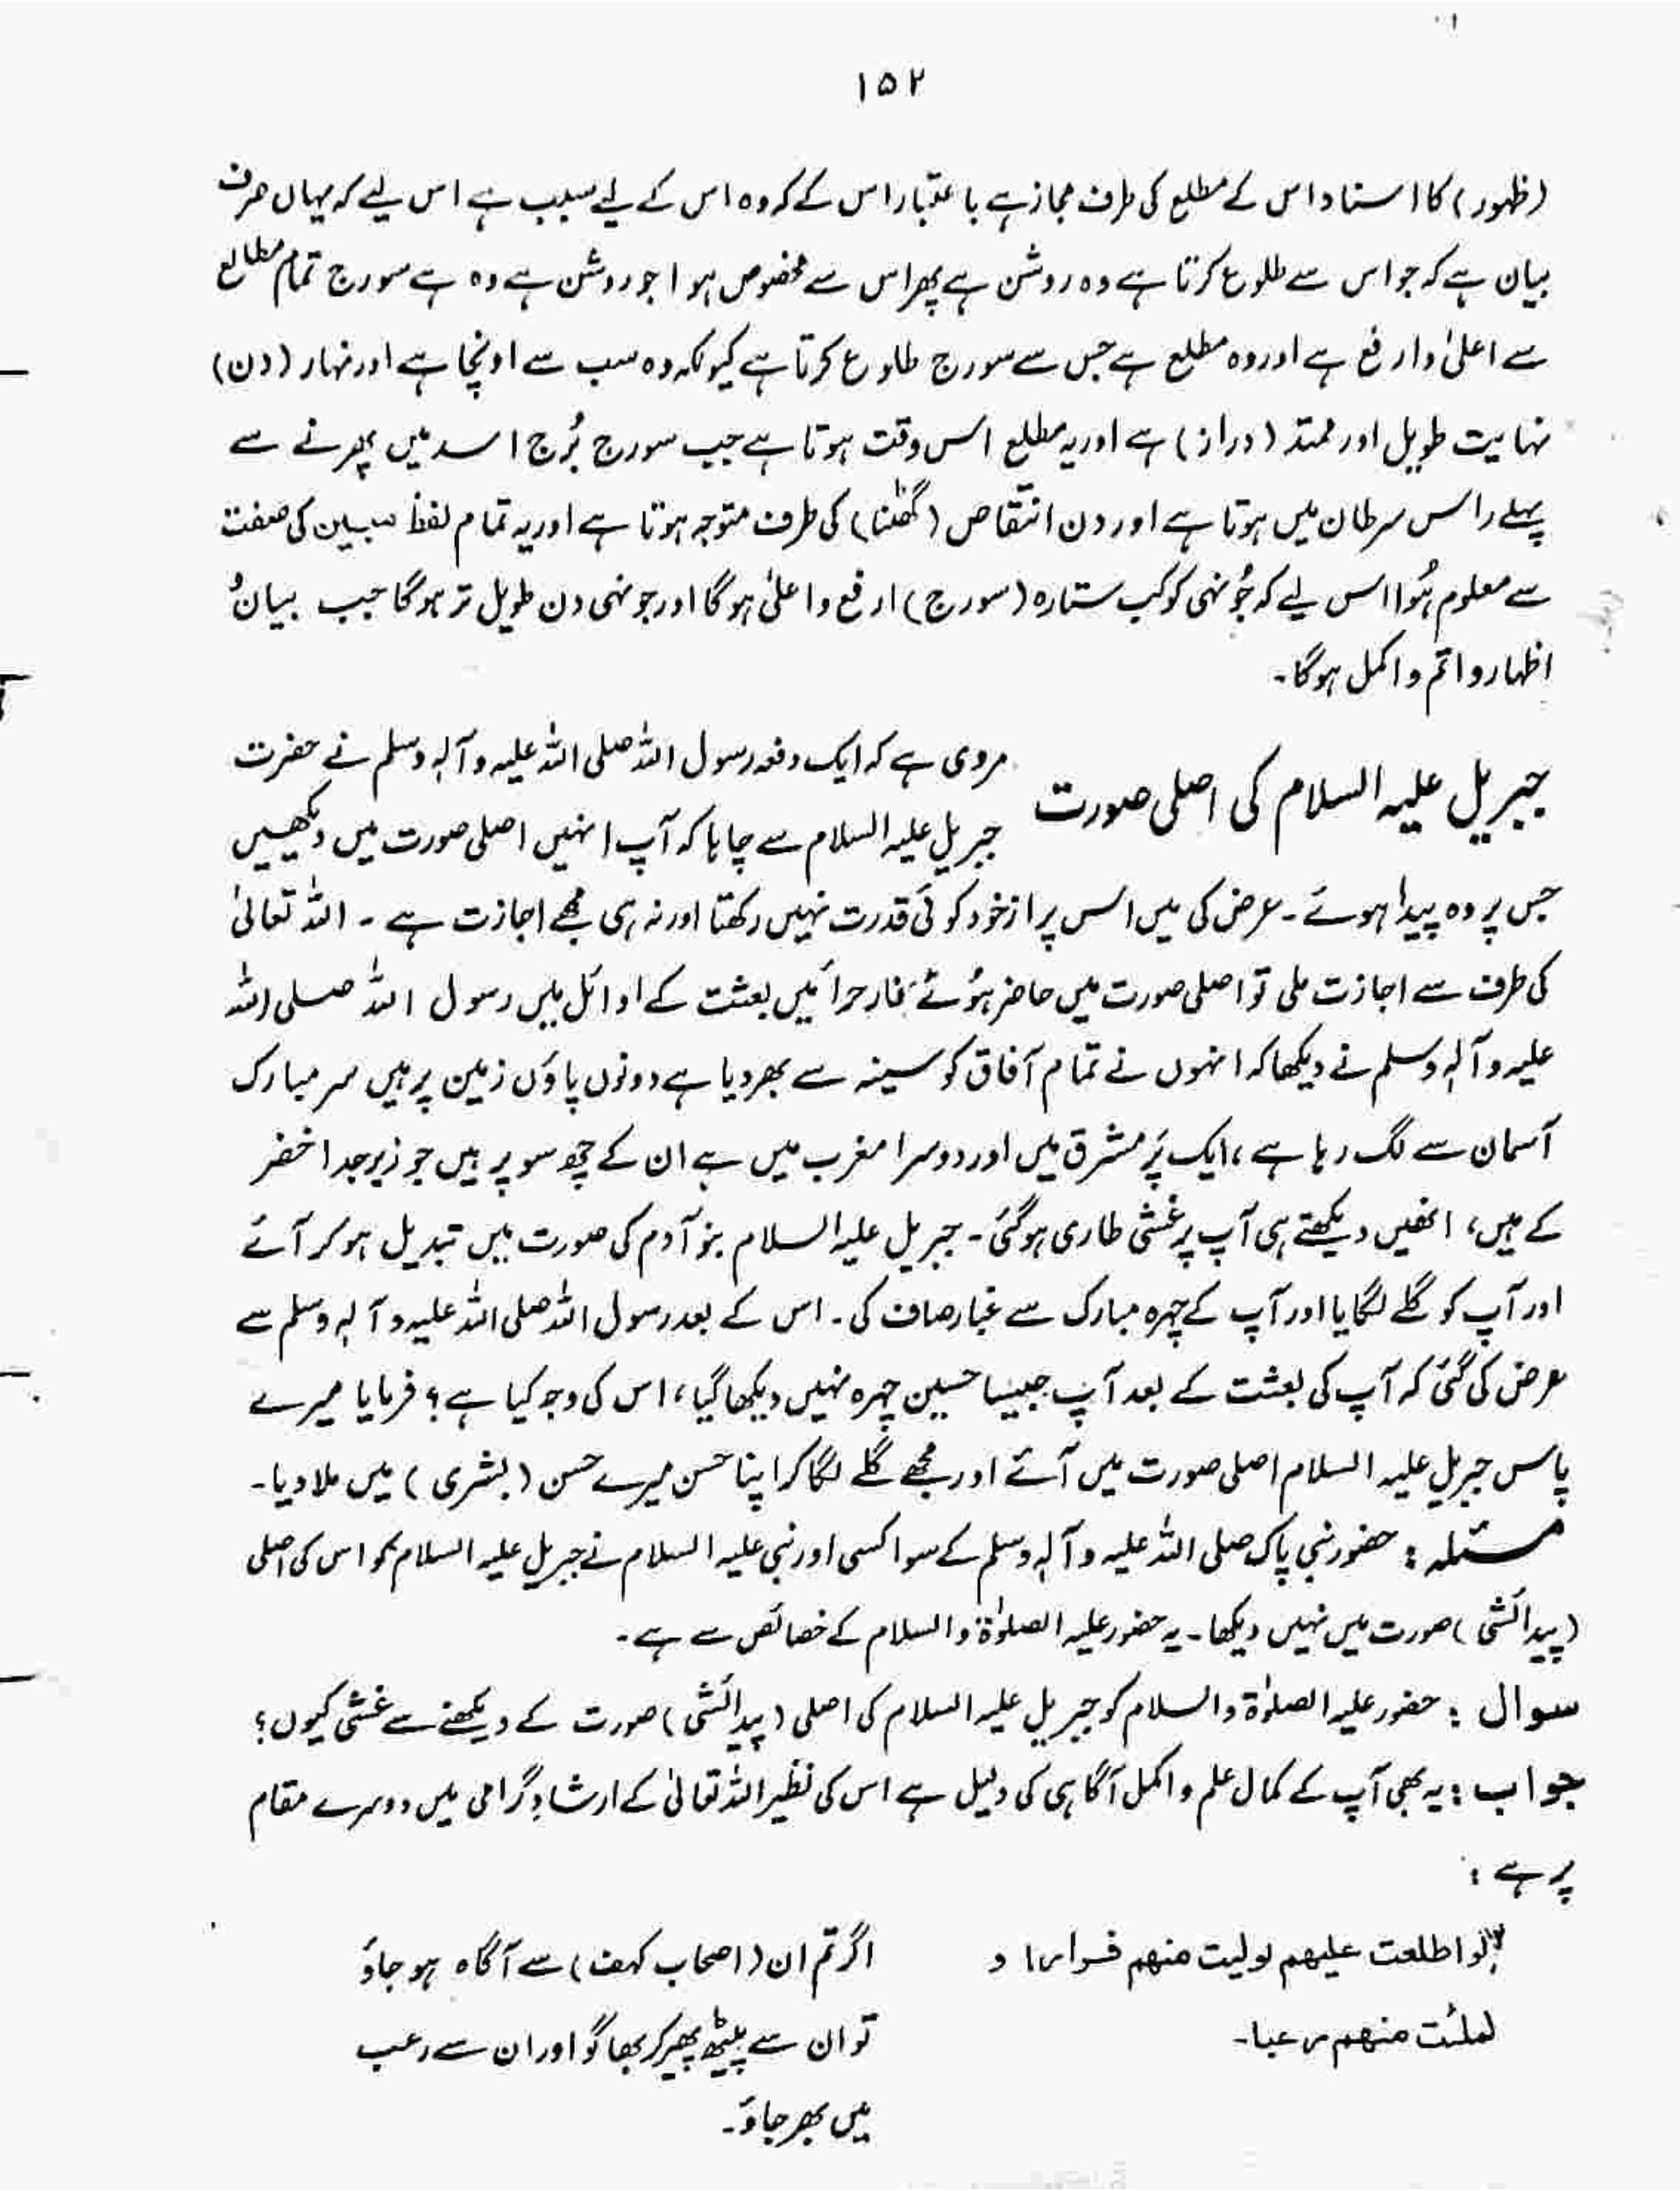 ۱۵۲
(ظہور) کا اسناد اس کے مطلع کی طرف مجاز ہے باعتبار اس کے کہ وہ اس کے لیے سبب ہے اس لیے کہ یہاں صرف
بیان ہے کہ جو اس سے طلوع کرتا ہے وہ روشن ہے پھر اس سے مخصوص ہوا جو روشن ہے وہ ہے سورج تمام مطالع
سے اعلیٰ وارفع ہے اور وہ مطلع ہے جس سے سورج طلوع کرتا ہے کیونکہ وہ سب سے اونچا ہے اور نہار (دن)
نہایت طویل اور ممتد (دراز) ہے اور یہ مطلع اس وقت ہوتا ہے جب سورج بُرج اسد میں پھرنے سے
پہلے راس سرطان میں ہوتا ہے اور دن انتقاص (گھٹنا) کی طرف متوجہ ہوتا ہے اور یہ تمام لفظ مبین کی صفت
سے معلوم ہُوا اس لیے کہ جُونہی کوکب ستارہ (سورج) ارفع واعلیٰ ہوگا اور جونہی دن طویل تر ہوگا جب بیان و
اظہار و اتم و اکمل ہوگا۔
جبریل علیہ السلام کی اصلی صورت مروی ہے کہ ایک دفعہ رسول اللہ صلی اللہ علیہ وآلہٖ وسلم نے حضرت
جبریل علیہ السلام سے چاہا کہ آپ انہیں اصلی صورت میں دیکھیں
جس پر وہ پیدا ہوئے۔ عرض کی میں اس پر ازخود کوئی قدرت نہیں رکھتا اور نہ ہی مجھے اجازت ہے ۔ اللہ تعالیٰ
کی طرف سے اجازت ملی تو اصلی صورت میں حاضر ہُوئے غار حرا میں بعثت کے اوائل میں رسول اللہ صلی اللہ
علیہ وآلہٖ وسلم نے دیکھا کہ انہوں نے تمام آفاق کو سینہ سے بھر دیا ہے دونوں پاؤں زمین پر ہیں سر مبارک
آسمان سے لگ رہا ہے ، ایک پَر مشرق میں اور دوسرا مغرب میں ہے ان کے چھ سو پر ہیں جو زبرجد اخضر
کے ہیں، انھیں دیکھتے ہی آپ پر غشی طاری ہوگئی۔ جبریل علیہ السلام بنو آدم کی صورت میں تبدیل ہوکر آئے
اور آپ کو گلے لگایا اور آپ کے چہرہ مبارک سے غبار صاف کی۔ اس کے بعد رسول اللہ صلی اللہ علیہ وآلہٖ وسلم سے
عرض کی گئی کہ آپ کی بعثت کے بعد آپ جیسا حسین چہرہ نہیں دیکھا گیا ، اس کی وجہ کیا ہے ؟ فرمایا میرے
پاس جبریل علیہ السلام اصلی صورت میں آئے اور مجھے گلے لگا کر اپنا حسن میرے حسن (بشری) میں ملا دیا۔
مسئلہ : حضور نبی پاک صلی اللہ علیہ وآلہٖ وسلم کے سوا کسی اور نبی علیہ السلام نے جبریل علیہ السلام کو اس کی اصلی
(پیدائشی) صورت میں نہیں دیکھا۔ یہ حضور علیہ الصلوٰۃ والسلام کے خصائص سے ہے۔
سوال : حضور علیہ الصلوٰۃ والسلام کو جبریل علیہ السلام کی اصلی (پیدائشی) صورت کے دیکھنے سے غشی کیوں؟
جواب : یہ بھی آپ کے کمال علم و اکمل آگاہی کی دلیل ہے اس کی نظیر اللہ تعالیٰ کے ارشادِ گرامی میں دوسرے مقام
پر ہے :
لواطلعت علیھم لولیت منھم فرارا و
لملئت منھم رعبا۔
اگر تم ان (اصحاب کہف) سے آگاہ ہو جاؤ
تو ان سے پیٹھ پھیر کر بھاگو اور ان سے رعب
میں بھر جاؤ۔